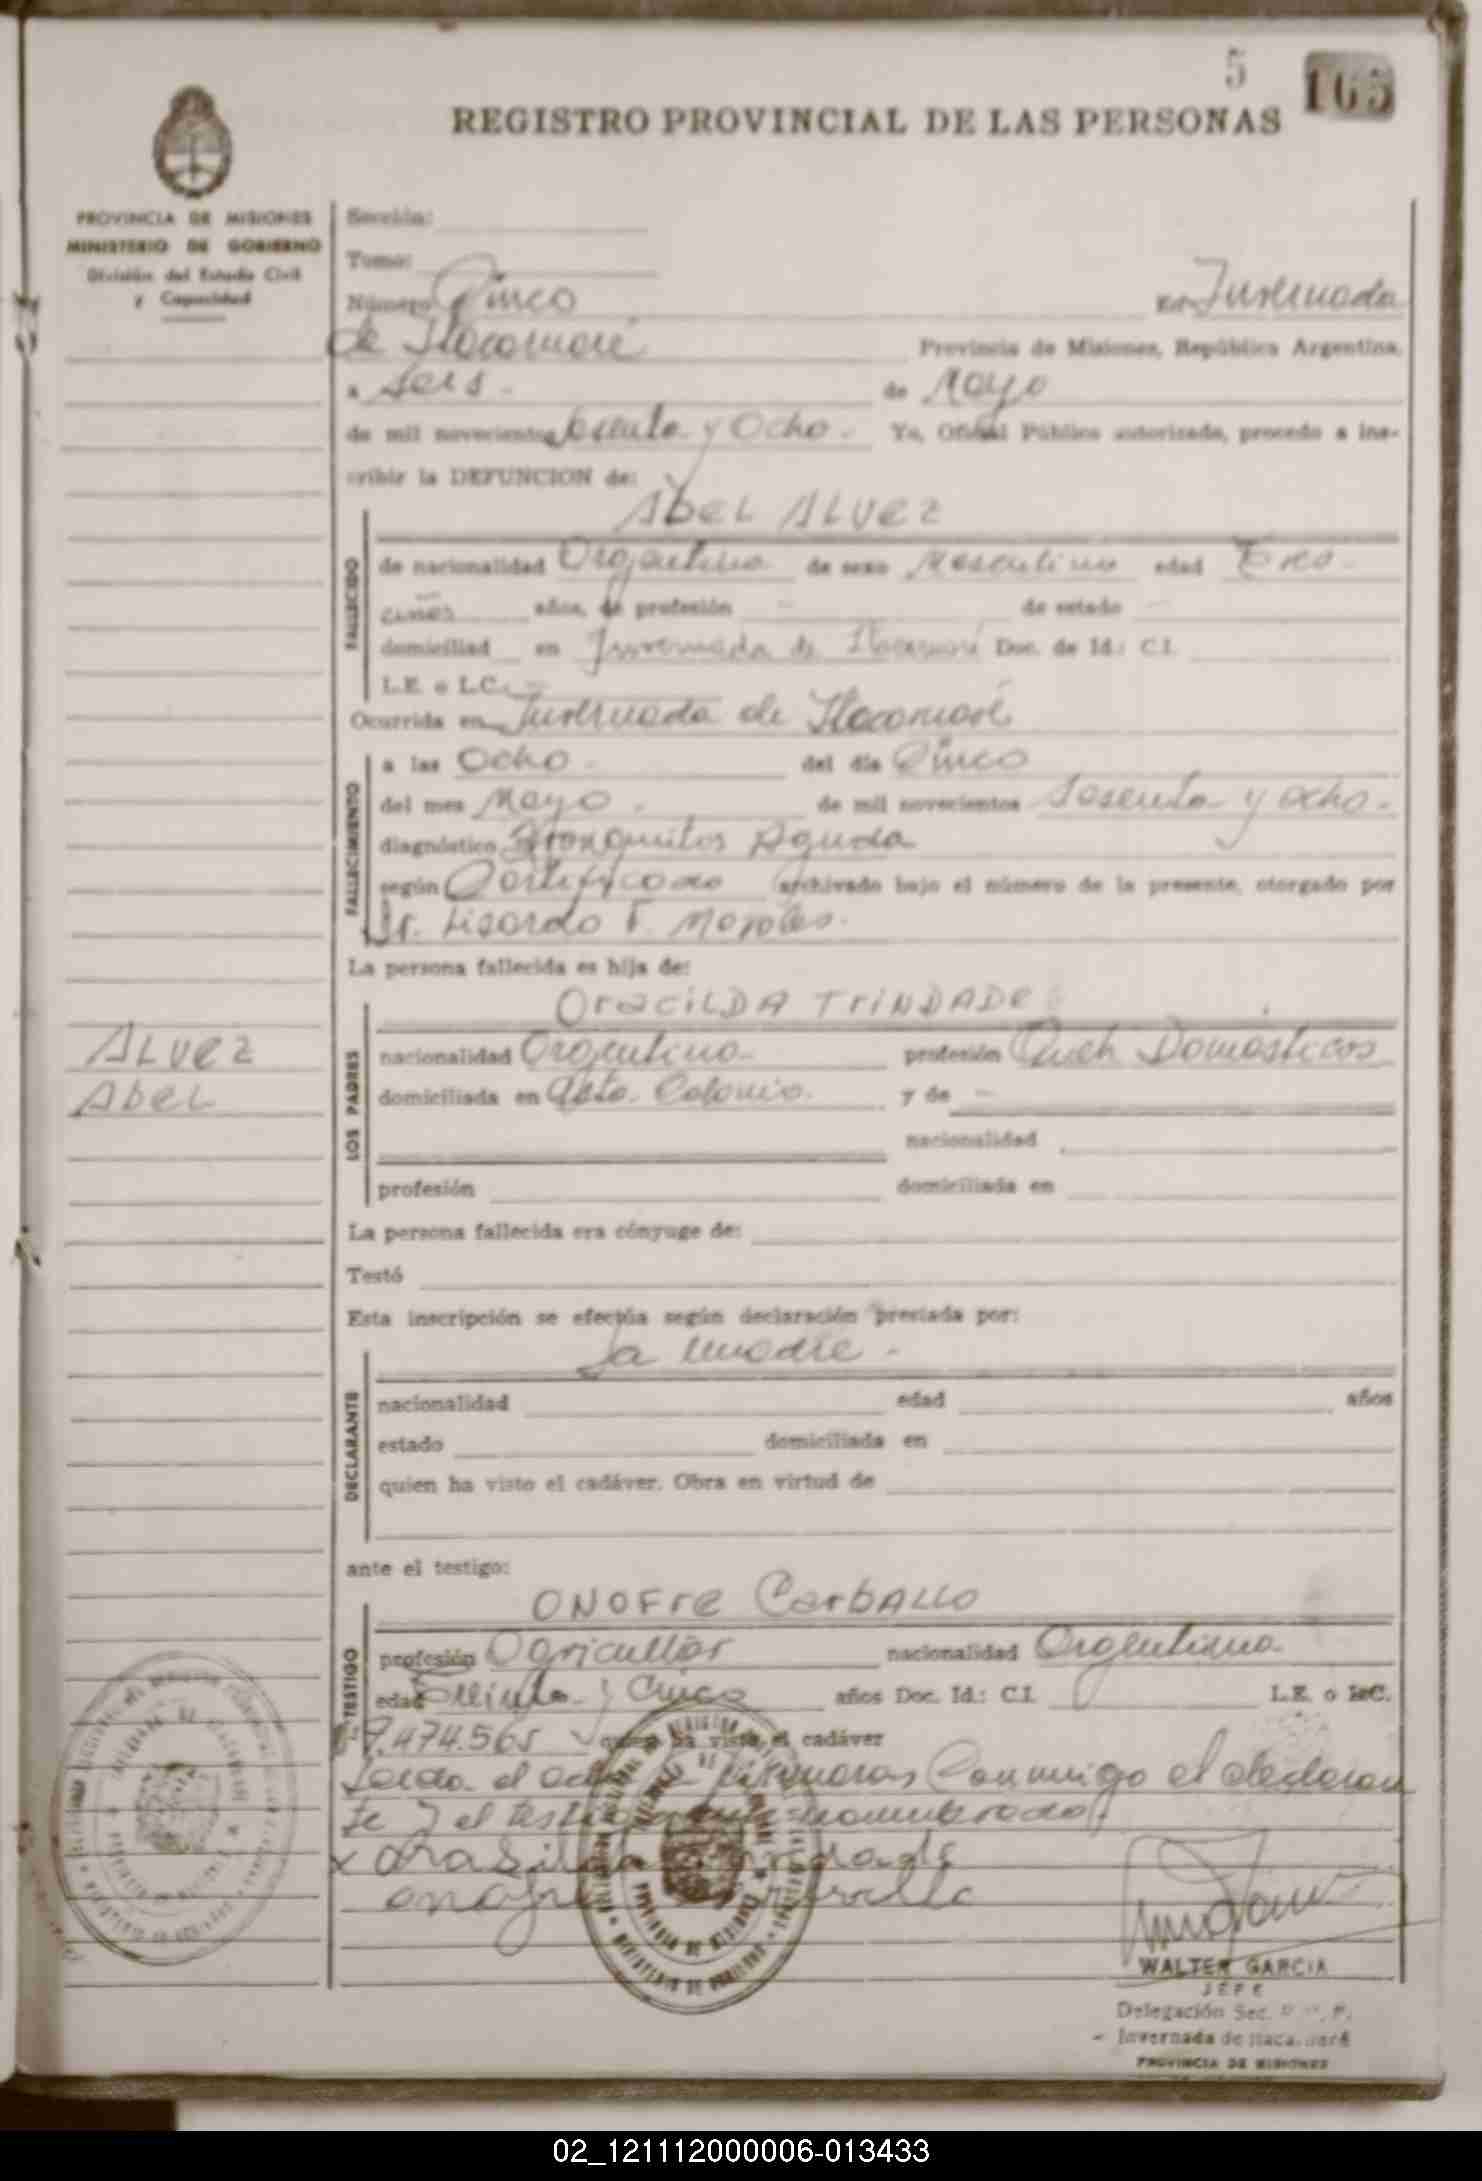 5 165
REGISTRO PROVINCIAL DE LAS PERSONAS
PROVINCIA DE MISIONES
MINISTERIO DE GOBIERNO
División del Estado Civil
y Capacidad
Sección:
Tomo:
Número Cinco en Invernada
de Itacaruaré Provincia de Misiones, República Argentina,
a Seis - de Mayo
de mil novecientos sesenta y Ocho - Yo, Oficial Público autorizado, procedo a ins-
cribir la DEFUNCION de:
Abel Alvez
FALLECIDO
de nacionalidad Argentina de sexo Masculino edad Tres
años, de profesión - de estado -
domiciliad en Invernada de Itacaruaré Doc. de Id.: C.I.
L.E. o L.C. -
Ocurrida en Invernada de Itacaruaré
FALLECIMIENTO
a las Ocho - del día Cinco
del mes Mayo . de mil novecientos Sesenta y ocho -
diagnóstico Bronquitos Aguda
según Certificado archivado bajo el número de la presente, otorgado por
Dr. Lisardo F. Morales.
La persona fallecida es hija de:
Oracilda Trindade
ALVez
Abel
LOS PADRES
nacionalidad Argentina profesión Queh. Domésticos
domiciliada en Colonia. y de -
nacionalidad
profesión domiciliada en
La persona fallecida era cónyuge de:
Testó
Esta inscripción se efectúa según declaración prestada por:
La madre -
DECLARANTE
nacionalidad edad años
estado domiciliada en
quien ha visto el cadáver. Obra en virtud de
ante el testigo:
Onofre Carballo
TESTIGO
profesión Agricultor nacionalidad Argentina
edad Treinta y Cinco años Doc. Id.: C.I. L.E. o L.C.
7.474.565 quien ha visto el cadáver
Leida el acta firmaron Conmigo el declaran
te y el testigo nombrado.
x Orasilda Trindade
onofre
WALTER GARCIA
JEFE
Delegación Sec.
Invernada de Itacaruaré
PROVINCIA DE MISIONES
02_121112000006-013433